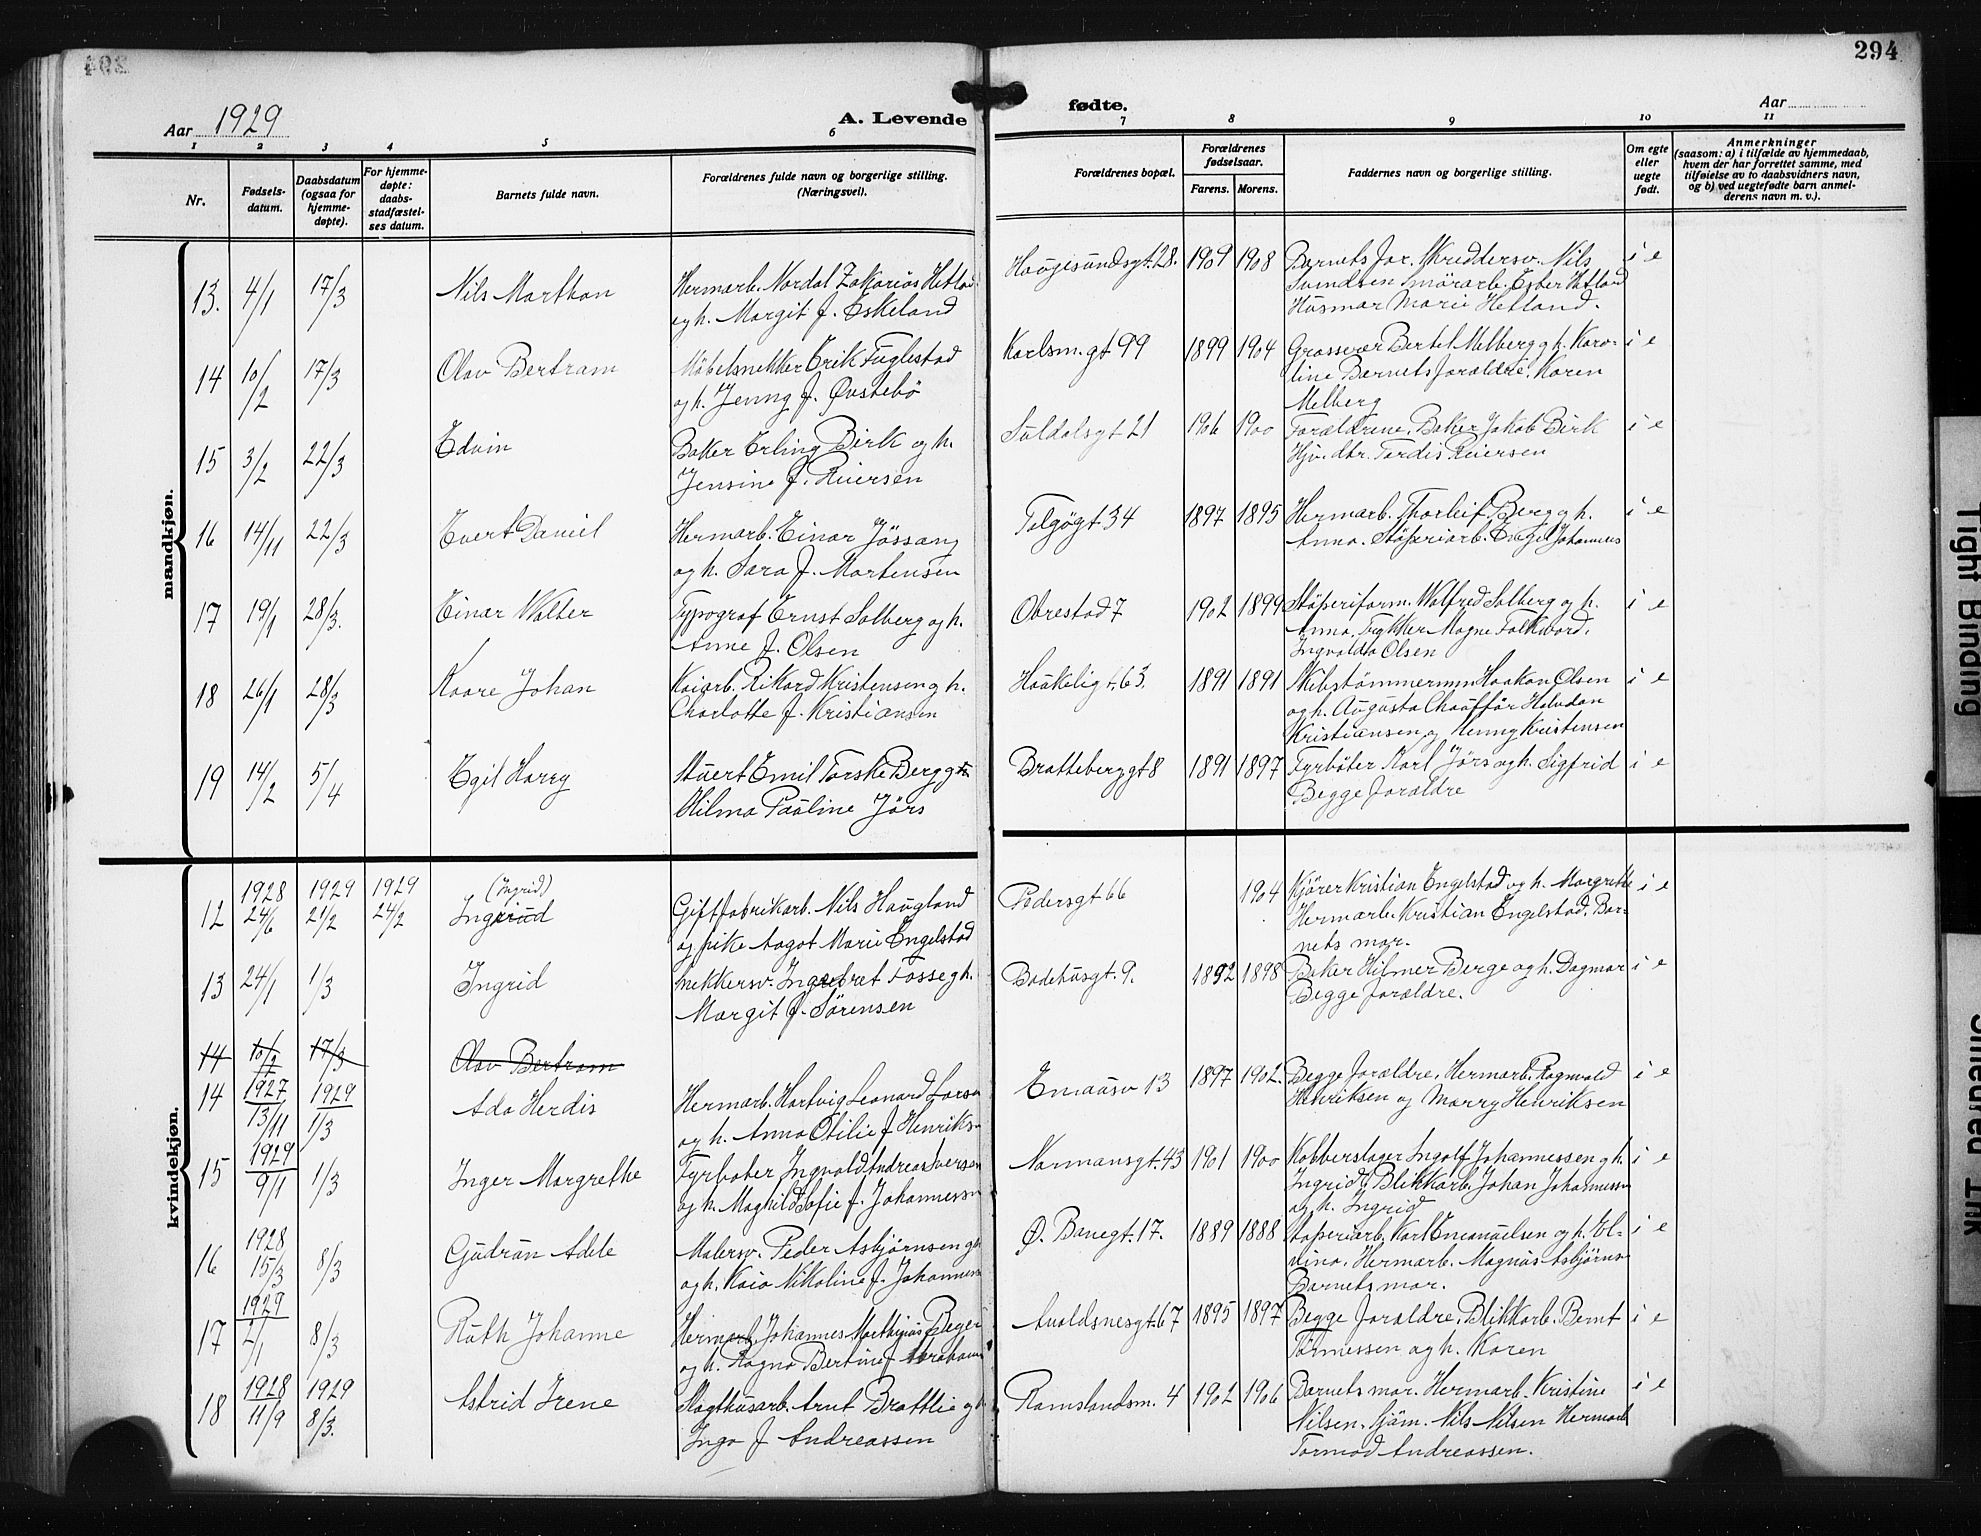 294
Aar 1929
A. Levende
fødte.
Aar
1 2 3 4 5 6 7 8 9 10 11
Nr.
Fødsels-
datum.
Daabsdatum
(ogsaa for
hjemme-
døpte).
For hjemme-
døpte:
daabs-
stadfæstel-
ses datum.
Barnets fulde navn.
Forældrenes fulde navn og borgerlige stilling.
(Næringsvei).
Forældrenes bopæl.
Forældrenes
fødselsaar.
Farens. Morens.
Faddernes navn og borgerlige stilling.
Om egte
eller
uegte
født.
Anmerkninger
(saasom: a) i tilfælde av hjemmedaab,
hvem der har forrettet samme, med
tilføielse av to daabsvidners navn,
og b) ved uegtefødte barn anmel-
derens navn m. v.).
mandkjøn.
13. 4/1 17/3 Nils Marthon
Hermarb. Nordal Zakarias Hetland
og h. Margit f. Eskeland
Haugesundsgt. 28. 1909 1908
Barnets far. Skreddersv. Nils
Svendsen Smörarb. Esber Hetland
Husmor Marie Hetland.
i e
14 10/2 17/3 Olav Bertram
Møbelsnekker Erik Fuglestad
og h. Jenny f. Øvstebö
Karlsm.gt 99 1899 1904
Grosserer Bertel Melberg og h. Karo-
line Barnets forældre. Karen
Melberg
i e
15 3/2 22/3 Edvin
Baker Erling Birk og h.
Jensine f. Reiersen
Suldalsgt 21 1906 1900
Forældrene. Baker Jakob Birk
Hjv. dtr. Tordis Reiersen
i e
16 14/11 22/3 Evert Daniel
Hermarb. Einar Jössang
og h. Sara f. Mortensen
Talgøgt 34 1897 1895
Hermarb. Thorleif Berg og h.
Anna. Støperiarb. Engel Johannes
i e
17 19/1 28/3. Einar Walter
Typograf Ernst Solberg og h.
Anne f. Olsen
Obrestad 7 1902 1899
Støperiform. Walfred Solberg og h.
Anna. Trykker Magne Falkvord.
Ingvalda Olsen
i e
18 26/1 28/3 Kaare Johan
Kaiarb. Rikard Kristensen og h.
Charlotte f. Kristiansen
Haukeligt. 63. 1891 1891
Skibstømmermn Haakon Olsen
og h. Augusta Chauffør Halvdan
Kristiansen og Henny Kristensen
i e
19 14/2 5/4 Egil Harry
Stuert Emil Torske Berg og h.
Hilma Pauline Jörs
Brattebergt 8 1891 1897
Fyrbøter Karl Jörs og h. Sigfrid
Begge forældre
i e
kvindekjøn.
12 1928 24/6 1929 21/2 1929 24/2 (Ingrid)
Ingerud
Giftfabrikarb. Nils Haugland
og pike Aagot Marie Engelstad
Pedersgt 66 1904
Kjører Kristian Engelstad og h. Margrethe
Hermarb. Kristian Engelstad. Bar-
nets mor.
i e
13 24/1 1/3 Ingrid
Snekkersv. Ingebret Fosse og h.
Margit f. Sørensen
Badehusgt. 9. 1892 1898
Baker Hilmer Berge og h. Dagmar
Begge forældre.
i e
14 10/2 17/3 Olav Bertram
14 1927 13/11 1929 1/3 Ada Herdis
Hermarb. Hartvig Leonard Larsen
og h. Anna Otilie f. Henriks-
Emausv 13 1897 1902.
Begge forældre. Hermarb. Ragnvald
Henriksen og Marry Henriksen
i e
15 1929 9/1 1/3 Inger Margrethe
Fyrbøter Ingvald Andreas Iversen
og h. Maghild Sofie f. Johannessn
Normansgt. 43 1901 1900
Kobberslager Ingolf Johannessen og h.
Ingrid. Blikkarb. Johan Johannessn
og h. Ingrid
i e
16 1928 15/3 8/3 Gudrun Adele
Malersv. Peder Asbjørnsen og h
og h. Kaia Nikoline f. Johannesn
Ø. Banegt. 17. 1889 1888
Støperiarb. Karl Emanuelsen og h. El-
vina. Hermarb. Magnus Asbjørns
Barnets mor.
i e
17 1929 2/1 8/3 Ruth Johanne
Hermarb. Johannes Mathias Bager
og h. Ragna Bertine f. Abraham
Avaldsnesgt. 67 1895 1897
Begge forældre. Blikkarb. Bernt
Tønnessen og h. Karen
i e
18 1928 11/9 1929 8/3. Astrid Irene
Slagthusarb. Arnt Brattlie og h
Inga f Andreassen
Ramslandsm. 4 1902 1906
Barnets mor. Hermarb. Kristine
Nilsen. Sjøm. Nils Nilsen Hermarb
Tormod Andreassen.
i e
Tight Binding